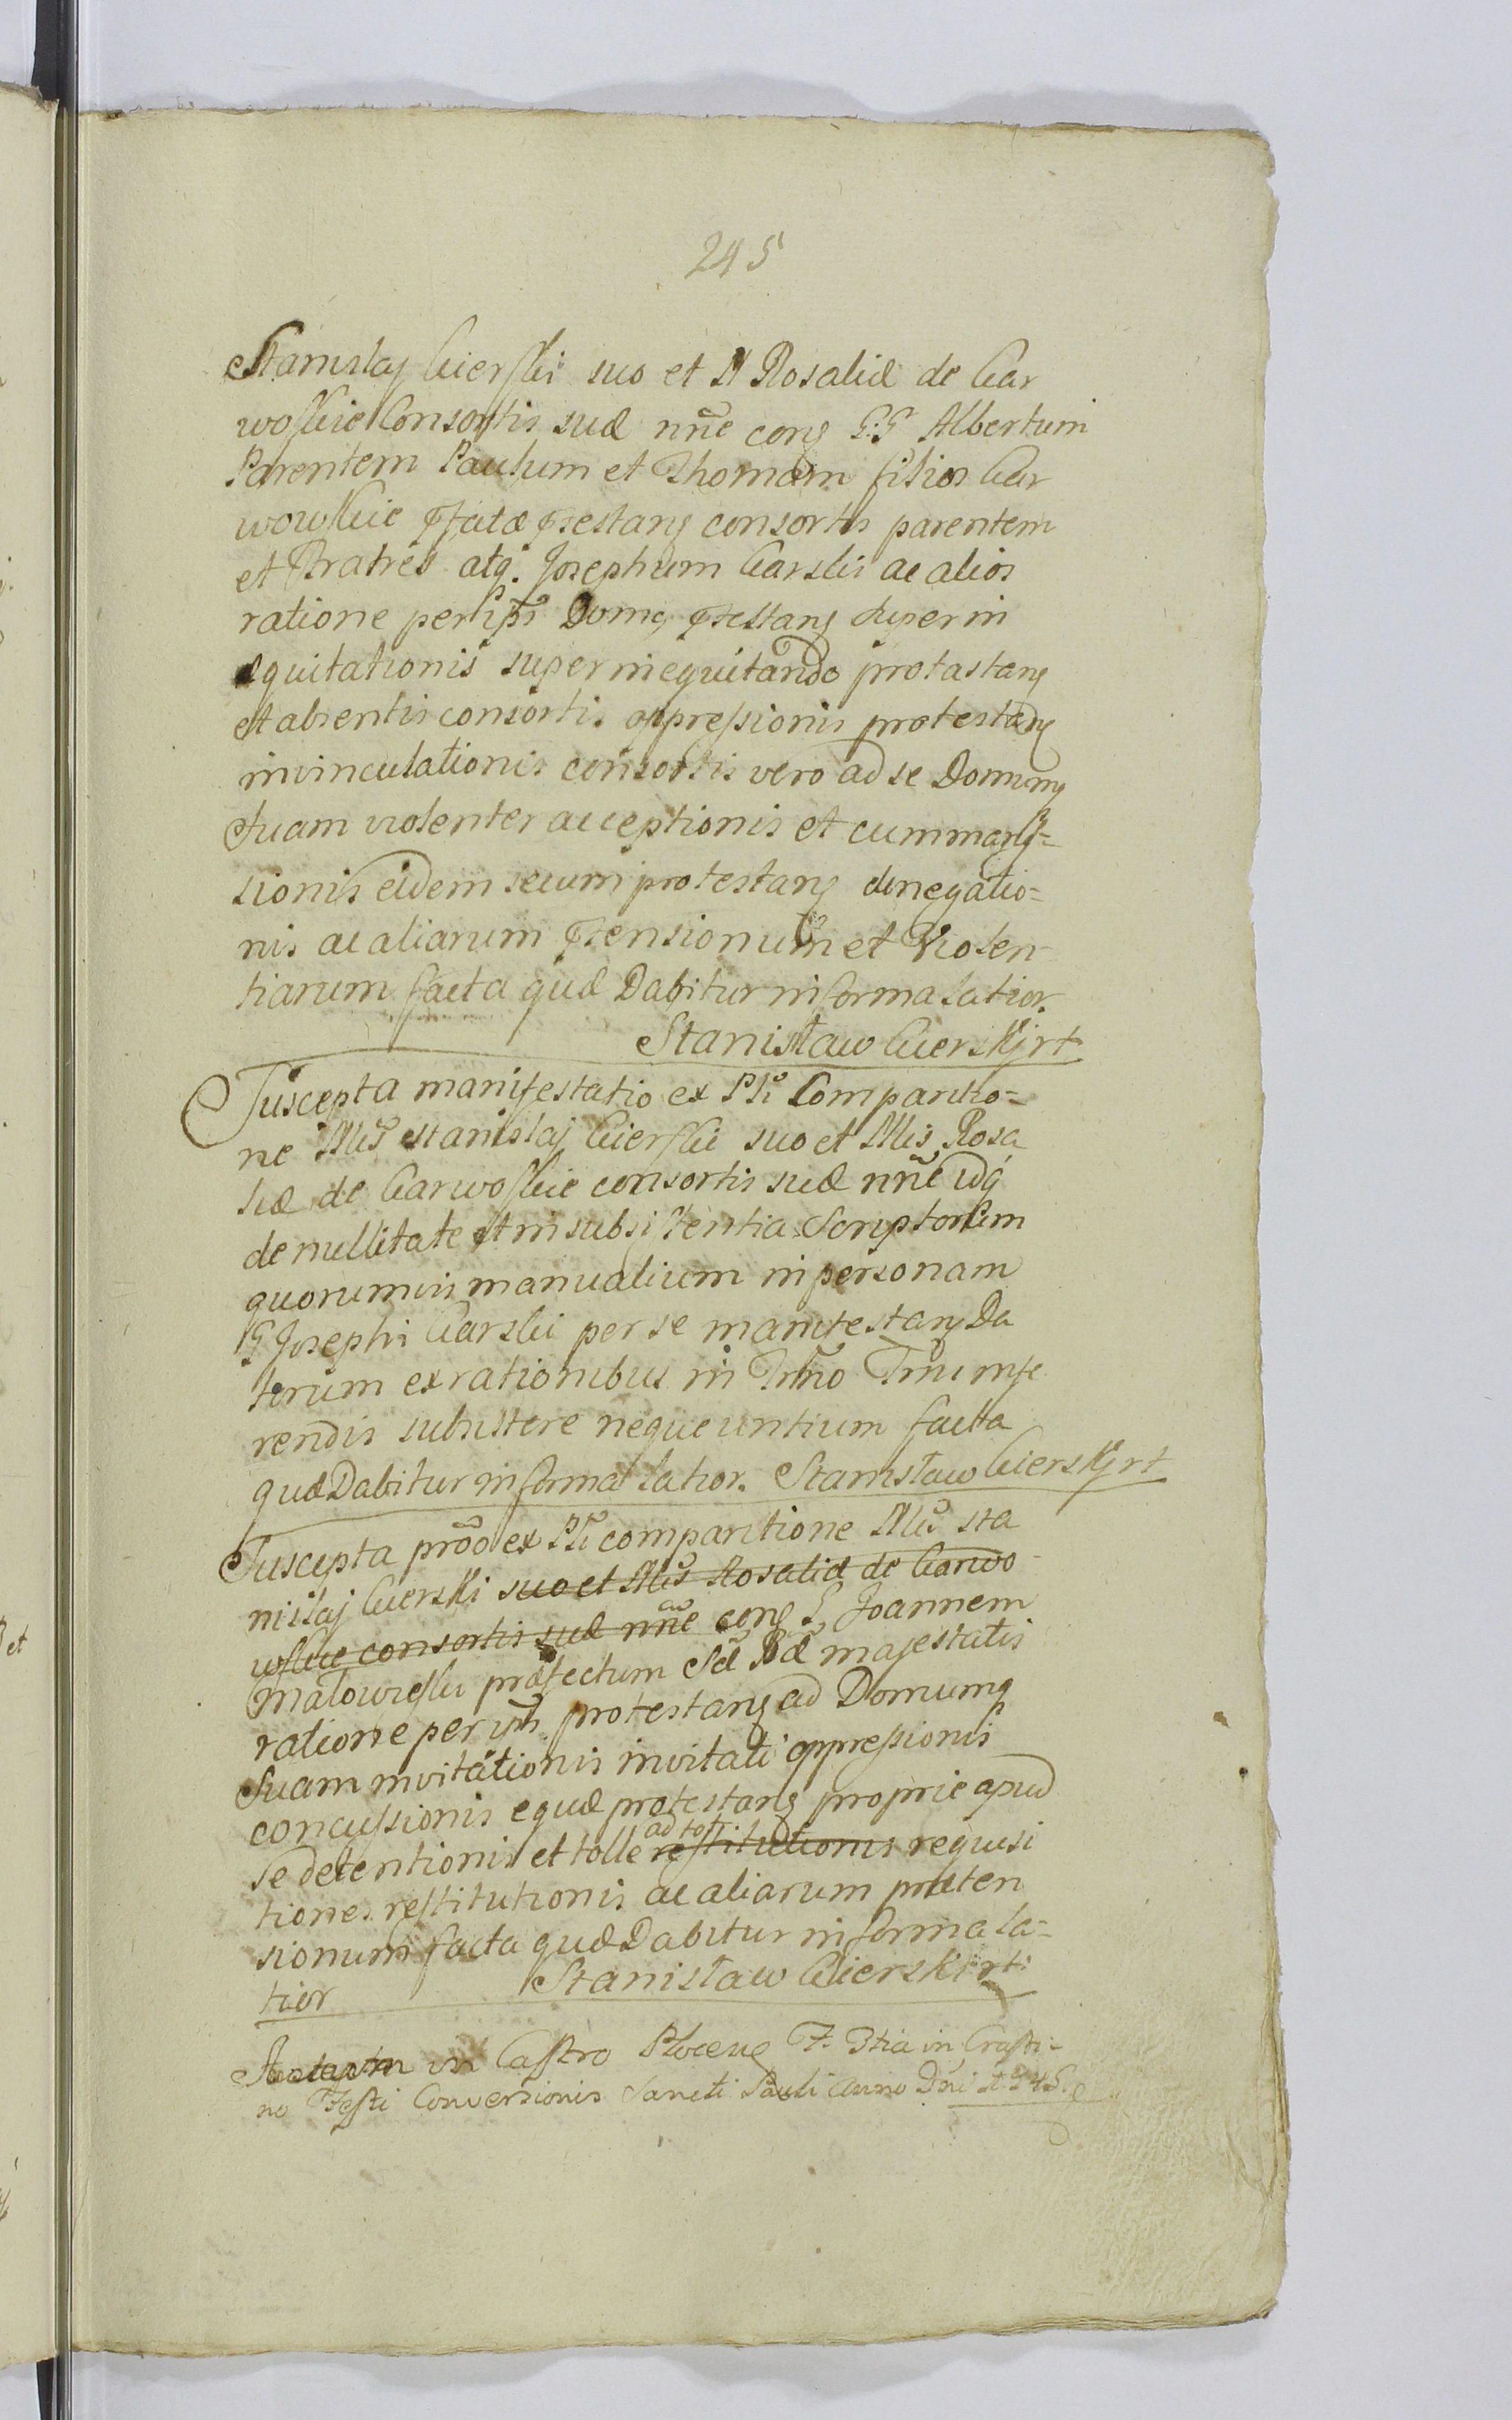 245
Stanislaj Cierski suo et M Rosaliæ de Gar
woskie Consortis suæ nn̄e cong G:G Albertum
Parentem Paulum et Thomam filios Gar
wowskie consortis parentem
et Fratres atq. Josephum Garski ac alios
ratione per ip̄s superin
equitationis superinequitando protastang
et absentis consortis oppressionis protestang
invinculationis consortis vero ad se Domumq
suam violenter acceptionis et cummanſ=
sionis eidem secum protestang denegatio=
nis ac aliarum et violen
tiarum facta quæ Dabitur in forma latior.
Stanisław Cierski rt
Suscepta manifestatio ex Pſti Compariti̇o=
ne Mis Stanislaj Cierski suo et Mis Rosa
liæ de Garwoskie consortis suæ nn̄e idq
de nullitate et insubsistentia Scriptorum
quorumvis manualium in personam
G Josephi Garski per se manifestang Da
torum ex rationibus in Tr̄no Tr̄ni infe
rendis subsistere nequeuntium facta
quæ Dabitur in forma latior. Stanisław Cierski rt
Suscepta prōō ex Pſti comparitione Mis Sta
nislaj Cierski suo et Mis Rosaliæ de Garwo
wskie consortis suæ nn̄e cong G Joannem
Malowieski præfectum Sæ Ræ majestatis
ratione per ip̄m protestang ad Domumq
Suam invitationis invitati oppressionis
concussionis equæ protestang proprie apud
se detentionis et tolle restitutionis ad tot requisi
tiones restitutionis ac aliarum præten
sionum facta quæ Dabitur in forma la=
tior Stanisław Cierski rt
in Castro Plocen F. 3tia in Crasti=
no Festi Conversionis Sancti Pauli Anno Dn̄i